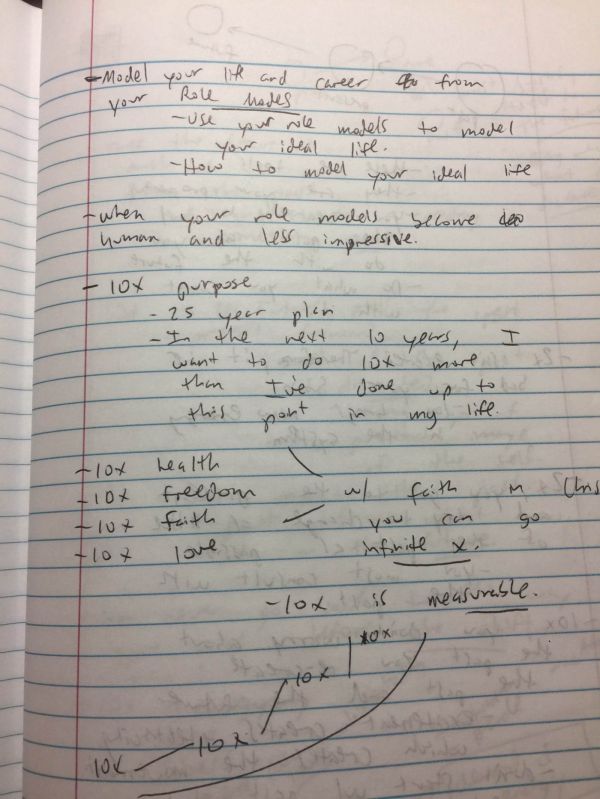 - Model your life and career from
your Role Models
- Use your role models to model
your ideal life.
- How to model your ideal life
- when your role models become
human and less impressive.
- 10x purpose
- 25 year plan
- In the next 10 years, I
want to do 10x more
than I've done up to
this point in my life.
- 10x health
- 10x freedom w/ faith in Chris
- 10x faith you can go
- 10x love infinite x.
- 10x is measurable.
10x
10x
10x
10x